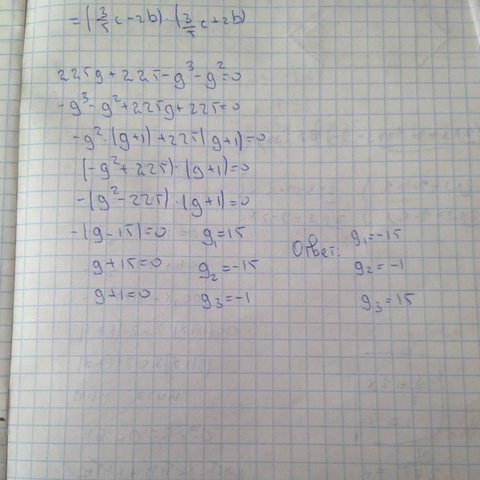 = (3/5 c - 2b) · (3/5 c + 2b)
225g + 225 - g³ - g² = 0
-g³ - g² + 225g + 225 = 0
-g² · (g+1) + 225(g+1) = 0
(-g² + 225) · (g+1) = 0
-(g² - 225) · (g+1) = 0
-(g - 15) = 0 g₁ = 15
g + 15 = 0 g₂ = -15
g + 1 = 0 g₃ = -1
Ответ: g₁ = -15
g₂ = -1
g₃ = 15